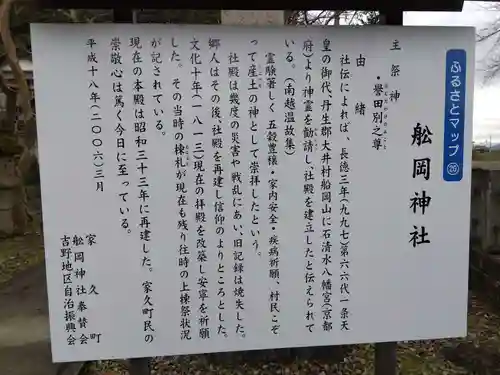 ふるさとマップ ㉖
舩岡神社
主祭神
・誉田別之尊
ほんだわけのみこと
由緒
社伝によれば、長徳三年(九九七)第六六代一条天
皇の御代、丹生郡大井村船岡山に石清水八幡宮(京都
府)より神霊を勧請し、社殿を建立したと伝えられて
いる。(南越温故集)
霊験著しく五穀豊穣・家内安全・疾病祈願、村民こぞ
って産土の神として崇拝したという。
社殿は幾度の災害や戦乱にあい、旧記録は焼失した。
郷人はその後、社殿を再建し信仰のよりどころとした。
文化十年(一八一三)現在の拝殿を改築し安寧を祈願
した。その当時の棟札が現在も残り往時の上棟祭状況
が記されている。
現在の本殿は昭和三十三年に再建した。家久町民の
崇敬心は篤く今日に至っている。
平成十八年(二〇〇六)三月
家久町
舩岡神社奉賛会
吉野地区自治振興会